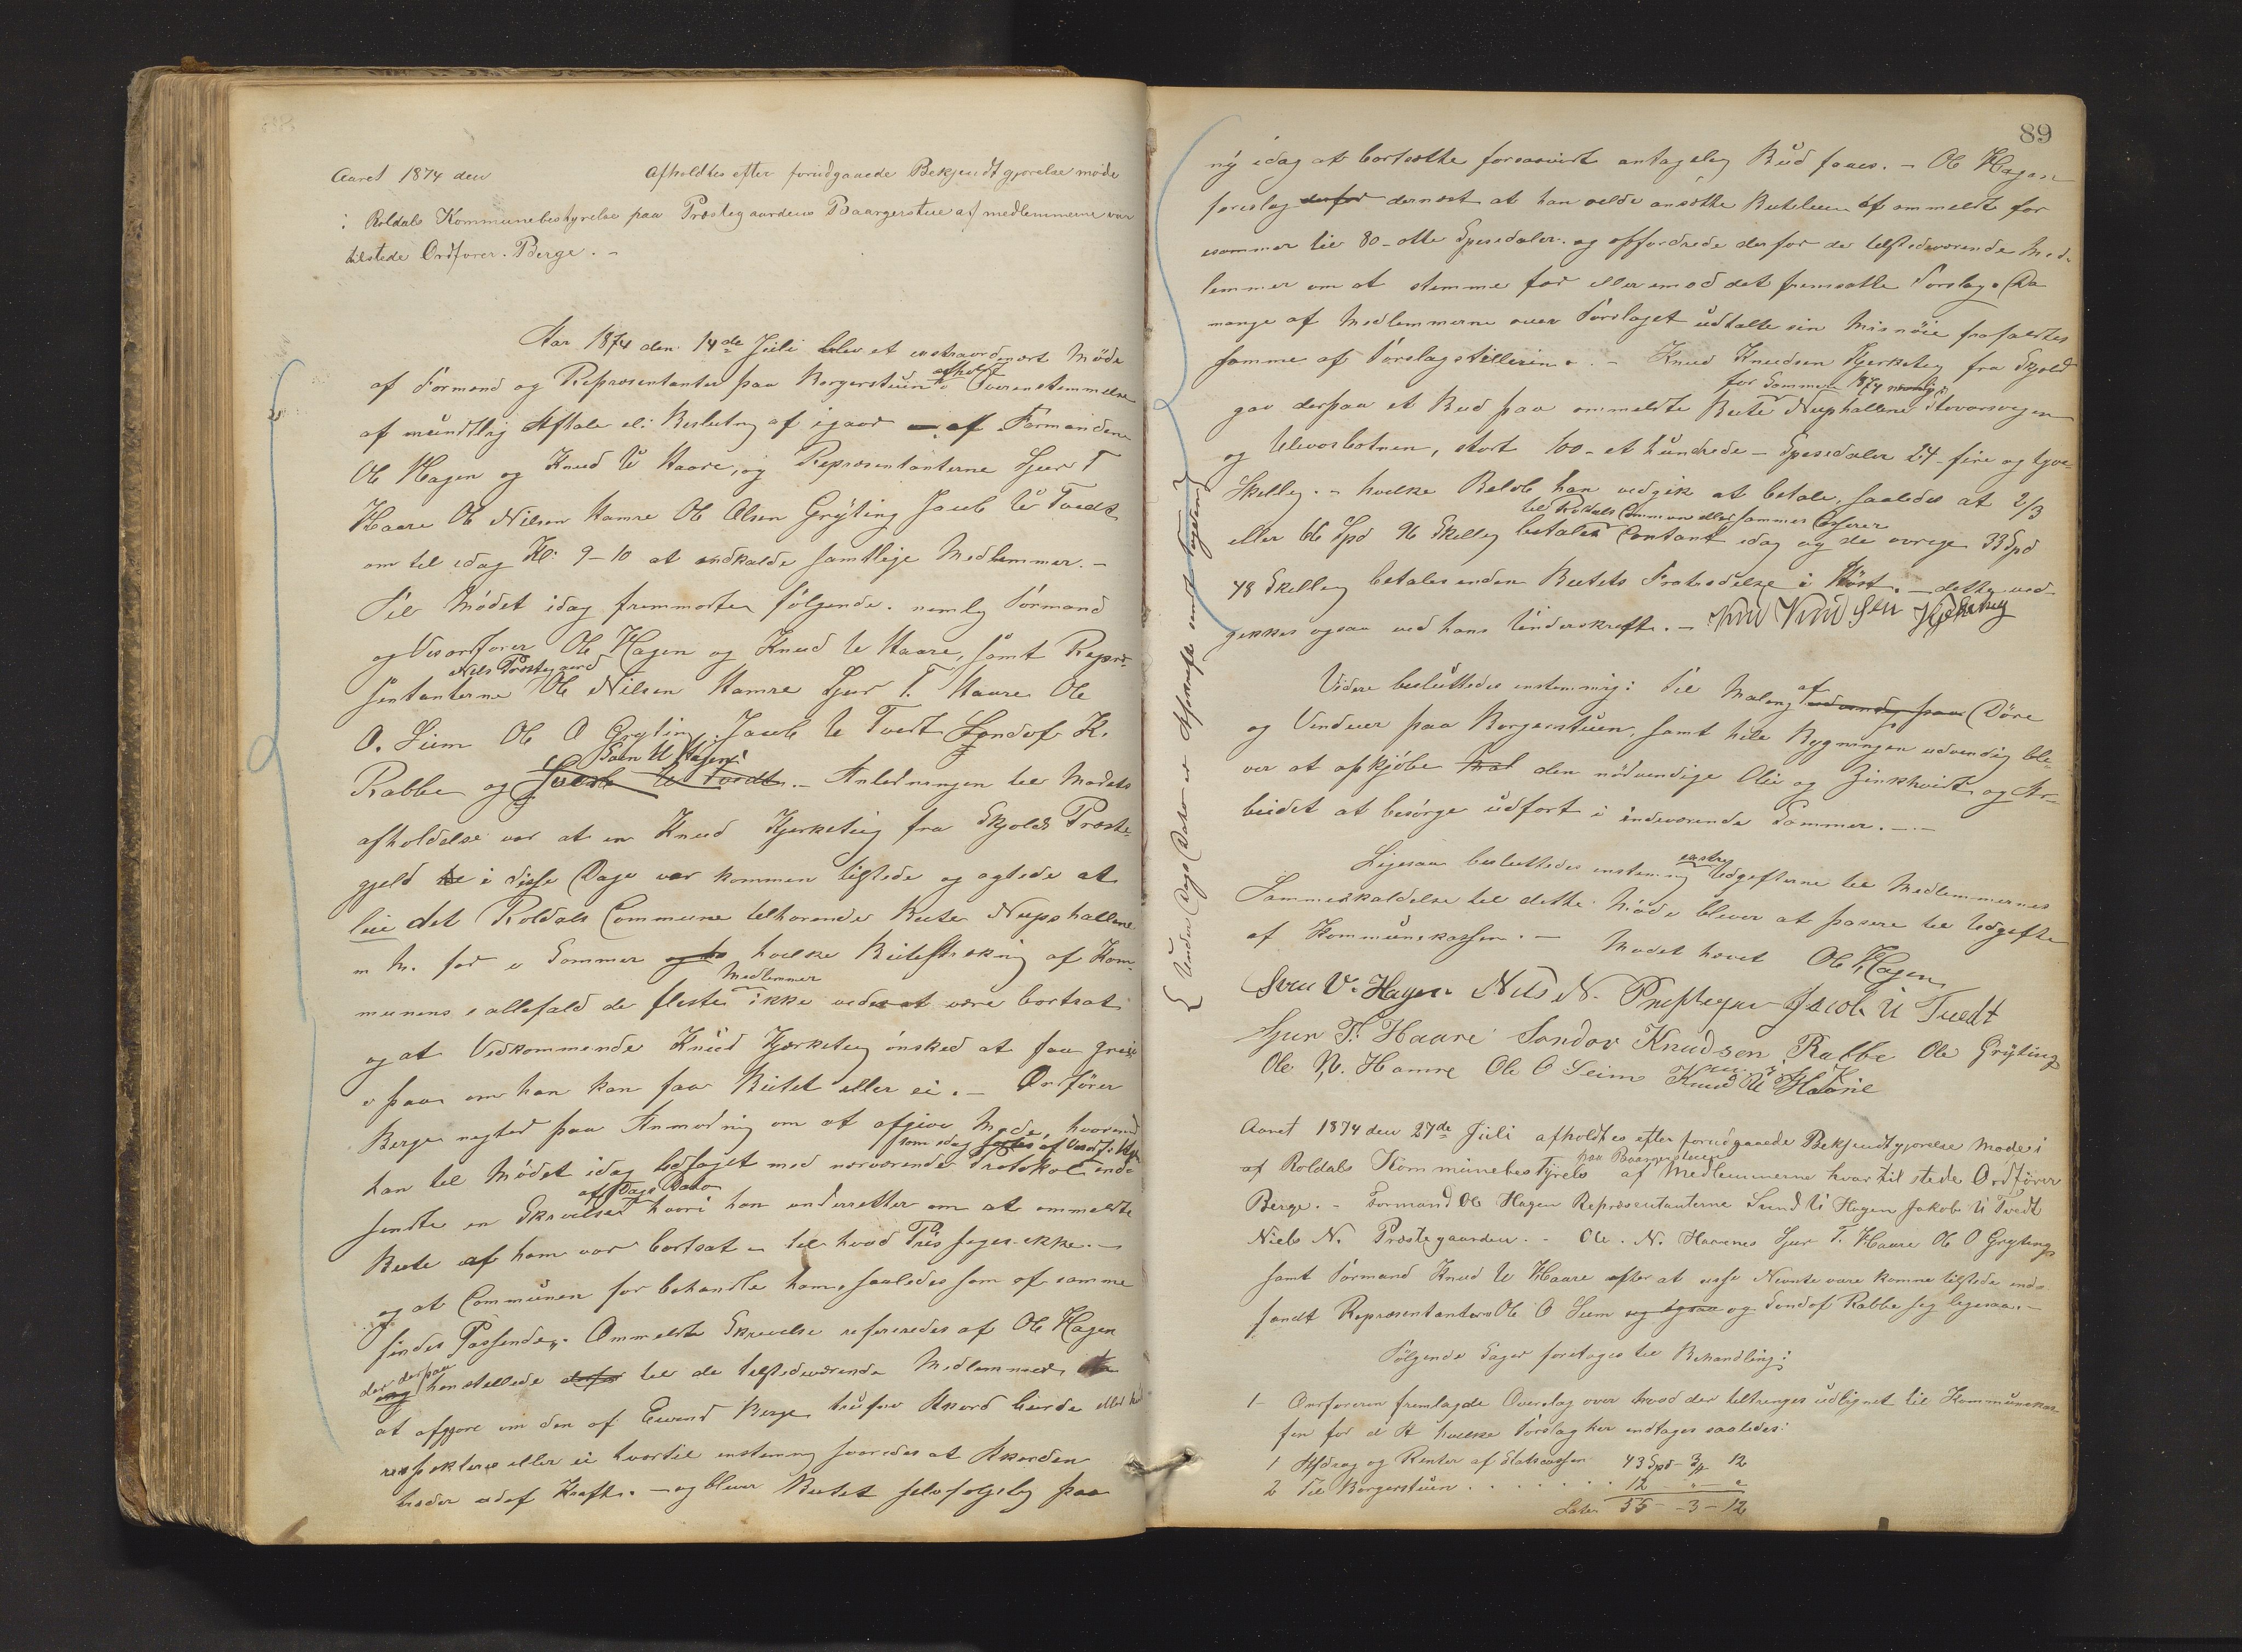 Aaret 1874 den                Afholdtes efter forudgaaede Bekjendtgjørelse møde
i Roldals Kommunebestyrelse paa Præstegaardens Baargerstue af medlemmerne var
tilstede Ordfører Berge. -
Aar 1874 den 14de Juli blev et extraordinært Møde
af Formend og Repræsentanter paa Borgerstuen afholdt i Overenstemmelse
af mundtlig Aftale el: Beslutng af igaar af Formændene
Ole Hagen og Knud U Haare, og Repræsentanterne Sjur T
Haare Ole Nilsen Hamre Ole Olsen Grÿting Jacob U Tvedt
om til idag Kl: 9-10 at indkalde samtlige Medlemmer. -
Til Mödet idag fremmødte følgende. nemlig Formand
og Viseordfører Ole Hagen og Knud U Haare, samt Repræ-
Nils Præstegaard
sentanterne Ole Nilsen Hamre Sjur T. Haare Ole
O. Seim Ole O Gryting. Jacob U Tvedt Sondof K.
Sven U Hagen
Rabbe og Jacob U Tvedt. - Anledningen til Mødets
afholdelse var at en Knud Kjerketeig fra Skjolds Præste-
gjeld i disse Dage var kommen tilstede og agtede at
leie det Roldals Commune tilhørende Beite Nupshallene
m M. for i Sommer hvilke Beitestrækning af Kom-
Medlemmer
munens i allefald de fleste ikke vides at være bortsat
og at Vedkommende Knud Kjerketeig ønsked at faa greie
paa om han kan faa Beitet eller ei. - Ordfører
Berge negted paa Anmodning om at afgive Møde, hvorimod
som idag af
han til Mödet idag ledsaget med nærværende Protokol ind-
af Dags Dato
sendte en Skrivelse hvori han underretter om at ommeldte
Beite af ham var bortsat - til hvad Pris siges ikke. -
og at Communen faar behandle ham saaledes som af samme
findes Passende". Ommeldte Skrivelse refereredes af Ole Hagen
der derpaa
henstillede til de tilstedeværende Medlemmer
at afgjøre om den af Eivind Berge trufne Akord burde
respekteres eller ei hvortil enstemmig svaredes at Akorden
træder udaf Kraft. - og bliver Beitet selvfølgelig paa
89
nÿ idag at bortsætte forsaavidt antagelig Bud faaes. - Ole Hagen
foreslog dernæst at han vilde ansætte Beiteleien af ommeldte for
isommer til 80 - otti Spesidaler. og opfordrede derfor de tilstedeværende Med-
lemmer om at stemme for eller imod det fremsatte Forslag. Da
mange af Medlemmerne over Forslaget udtalte sin Misnöie frafaldtes
samme af Forslagstilleren. - Knud Knudsen Kjerketeig fra Skjold
for Sommeren 1874 nemlig:
gav derpaa et Bud paa ommeldte Beite Nupshallene Stovasvegen
og Ulevosbotnen, stort 100 - et hundrede - Spesidaler 24 - fire og tyve
Skilling. - hvilke Beløb han vedgik at betale, saaledes at 2/3
til Roldals Commune eller sammes Casserer
eller 66 Spd 96 Skilling betales Contant idag og de øvrige 33 Spd
48 Skilling betales inden Beitets Fratrædelse i Høst. - dette ved-
gikkes ogsaa ved hans Underskrift. - Knud Knudsen Kjerketeig
Under Dags Dato er Afskrift
Videre besluttedes enstemmig: Til Maling af udvendig paa Döre
og Vinduer paa Borgerstuen, samt hele Bygningen udvendig bli-
ver at opkjöbe den nödvendige Olie og Zinkhvidt og Ar-
beidet at besörge udfört i indeværende Sommer. -
Ligesaa besluttedes enstemmig extra Udgifterne til Medlemmernes
Sammenkaldelse til dette Möde bliver at passere til Udgift
af Kommunekassen. - Mødet hævet Ole Hagen
Sven U. Hagen Nils N. Præstegar Jacob U Tvedt
Sjur T. Haare Sondov Knudsen Rabbe Ole Grÿting
Ole N. Hamre Ole O Seim Knud U Haare
Aaret 1874 den 27de Juli afholdtes efter forudgaaede Bekjendtgjørelse Møde i
paa Baargerstuen
af Roldals Kommunebestÿrels af Medlemmerne hvar til stede Ordfører
Berge. - Formand Ole Hagen Repræsentanterne Svend U Hagen Jakob U Tvedt
Niels N. Præstegaarden. - Ole. N. Hamre Sjur T. Haare Ole O Gryting
samt Formand Knud U Haare efter at disse Nevnte vare komne tilstede ind-
fandt Repræsentanterne Ole O Seim og Sondof Rabbe sig ligesaa. -
Fölgende Sager foretoges til Behandling:
1- Ordføreren fremlagde Overslag over hvad der tiltrænges udlignet til Kommunekas-
sen for d A hvilke Forslag her indtages saaledes:
1 Afdrag og Renter af Statscassen 43 Spd - 3 ₥ 12
2 Til Borgerstuen . . . . . . . 12 " "
Lateris 55 - 3 - 12